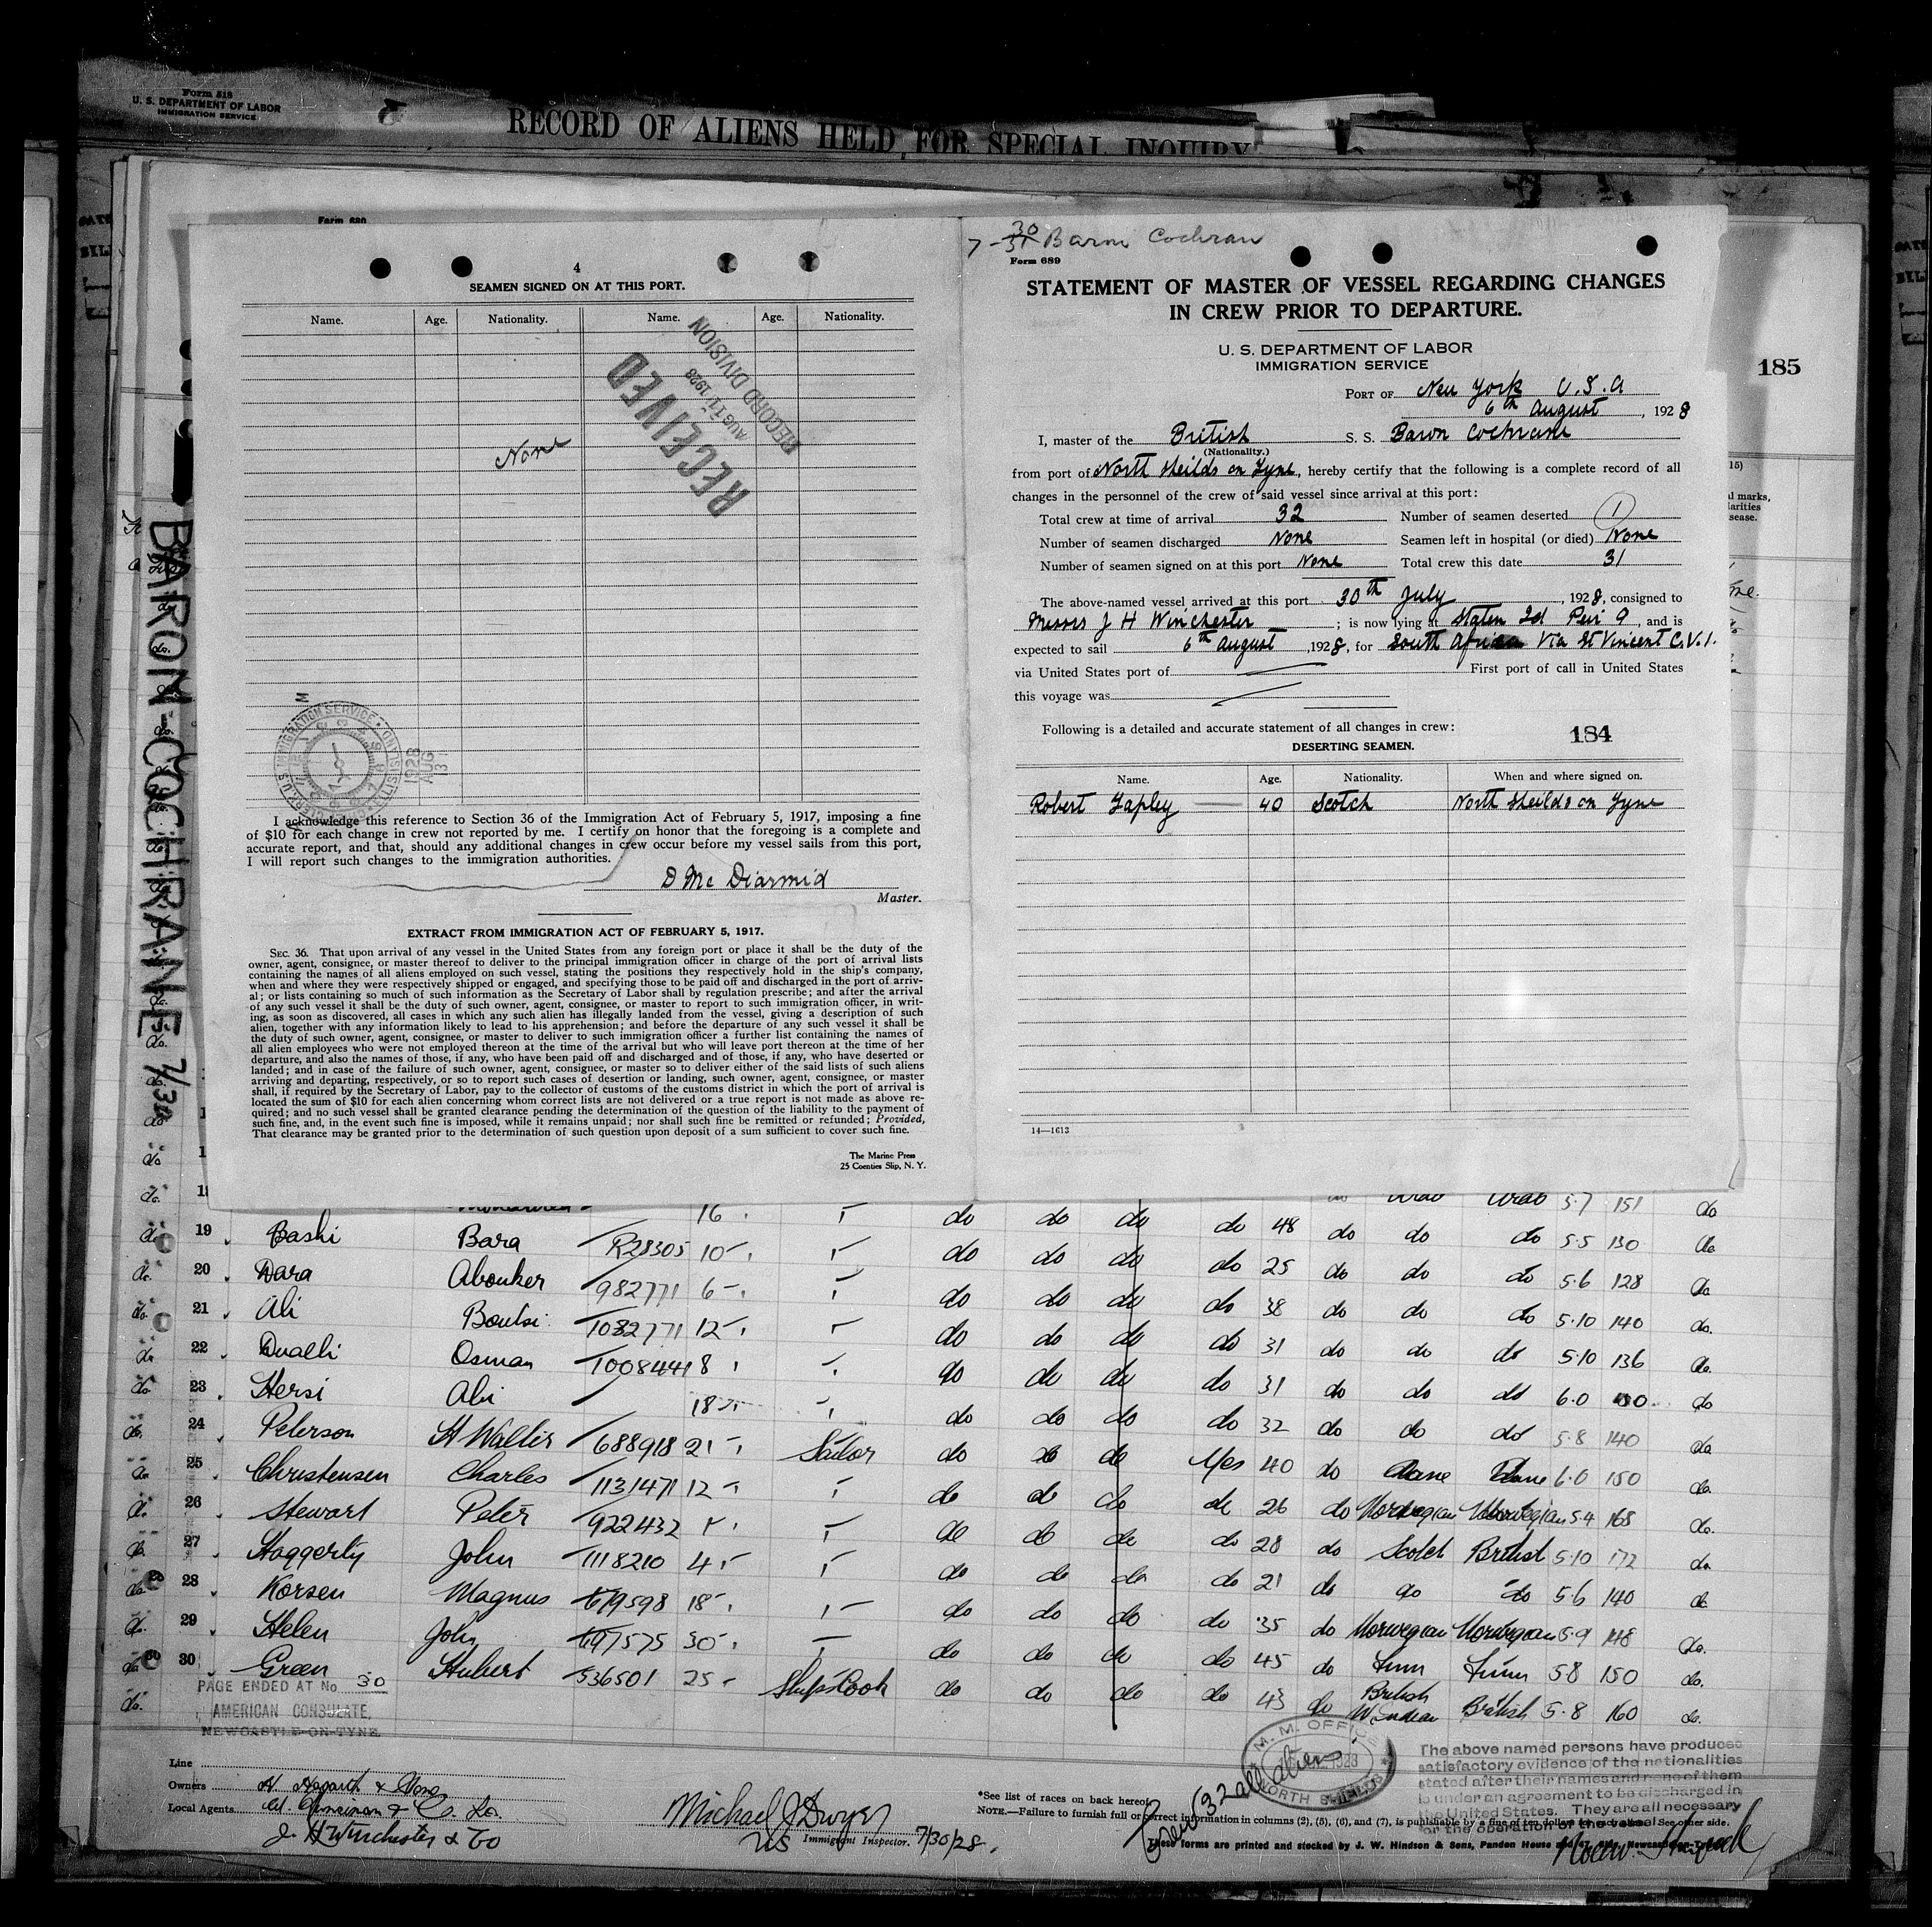 Form 518
U. S. DEPARTMENT OF LABOR
IMMIGRATION SERVICE
RECORD OF ALIENS HELD FOR SPECIAL INQUIRY
Form 680
4
SEAMEN SIGNED ON AT THIS PORT.
Name. Age. Nationality. Name. Age. Nationality.
RECEIVED
AUG 11 1928
RECORD DIVISION
None
I acknowledge this reference to Section 36 of the Immigration Act of February 5, 1917, imposing a fine
of $10 for each change in crew not reported by me. I certify on honor that the foregoing is a complete and
accurate report, and that, should any additional changes in crew occur before my vessel sails from this port,
I will report such changes to the immigration authorities.
D Mc Diarmid
Master.
EXTRACT FROM IMMIGRATION ACT OF FEBRUARY 5, 1917.
SEC. 36. That upon arrival of any vessel in the United States from any foreign port or place it shall be the duty of the
owner, agent, consignee, or master thereof to deliver to the principal immigration officer in charge of the port of arrival lists
containing the names of all aliens employed on such vessel, stating the positions they respectively hold in the ship's company,
when and where they were respectively shipped or engaged, and specifying those to be paid off and discharged in the port of arriv-
al; or lists containing so much of such information as the Secretary of Labor shall by regulation prescribe; and after the arrival
of any such vessel it shall be the duty of such owner, agent, consignee, or master to report to such immigration officer, in writ-
ing, as soon as discovered, all cases in which any such alien has illegally landed from the vessel, giving a description of such
alien, together with any information likely to lead to his apprehension; and before the departure of any such vessel it shall be
the duty of such owner, agent, consignee, or master to deliver to such immigration officer a further list containing the names of
all alien employees who were not employed thereon at the time of the arrival but who will leave port thereon at the time of her
departure, and also the names of those, if any, who have been paid off and discharged and of those, if any, who have deserted or
landed; and in case of the failure of such owner, agent, consignee, or master so to deliver either of the said lists of such aliens
arriving and departing, respectively, or so to report such cases of desertion or landing, such owner, agent, consignee, or master
shall, if required by the Secretary of Labor, pay to the collector of customs of the customs district in which the port of arrival is
located the sum of $10 for each alien concerning whom correct lists are not delivered or a true report is not made as above re-
quired; and no such vessel shall be granted clearance pending the determination of the question of the liability to the payment of
such fine, and, in the event such fine is imposed, while it remains unpaid; nor shall such fine be remitted or refunded; Provided,
That clearance may be granted prior to the determination of such question upon deposit of a sum sufficient to cover such fine.
The Marine Press
25 Coenties Slip, N. Y.
7-30 31 Baron Cochran
Form 689
STATEMENT OF MASTER OF VESSEL REGARDING CHANGES
IN CREW PRIOR TO DEPARTURE.
U. S. DEPARTMENT OF LABOR
IMMIGRATION SERVICE
PORT OF New York U.S.A
6th August, 1928
I, master of the British S. S. Baron Cochrane
(Nationality.)
from port of North Sheilds on Tyne, hereby certify that the following is a complete record of all
changes in the personnel of the crew of said vessel since arrival at this port:
Total crew at time of arrival 32 Number of seamen deserted 1
Number of seamen discharged None Seamen left in hospital (or died) None
Number of seamen signed on at this port None Total crew this date 31
The above-named vessel arrived at this port 30th July, 1928, consigned to
Messrs J H Winchester; is now lying at Staten Id Peir 9, and is
expected to sail 6th August, 1928, for South Africa Via St Vincent C.V.I.
via United States port of First port of call in United States
this voyage was
Following is a detailed and accurate statement of all changes in crew:
184
DESERTING SEAMEN.
Name. Age. Nationality. When and where signed on.
Robert Tapley 40 Scotch North Sheilds on Tyne
14—1613
185
BARON-COCHRANE 7/30
16 do do do do 48 do Arab Arab 5.7 151 do
19 Bashi Bara R28305 10 do do do do 25 do do do 5.5 130 do
20 Dara Abouker 982771 6 do do do do 38 do do do 5.6 128 do
21 Ali Boulsi 1082771 12 do do do do 31 do do do 5.10 140 do.
22 Dualli Osman 1008441 8 do do do do 31 do do do 5.10 136 do.
23 Hersi Abi 18 do do do do 32 do do do 6.0 do
24 Peterson H Walter 688918 21 Sailor do do do Yes 40 do Dane Dane 5.8 140 do
25 Christensen Charles 1131471 12 do do do do 26 do Norwegian Norwegian 6.0 150 do.
26 Stewart Peter 922432 do do do do 28 do Scotch British 5.4 168 do.
27 Haggerty John 1118210 4 do do do do 21 do do do 5.10 172 do
28 Korsen Magnus 679598 18 do do do do 35 do Norwegian Norwegian 5.6 140 do.
29 Helen John 697575 30 do do do do 45 do Finn Finn 5.9 148 do.
30 Green Hubert 536501 25 Ships Cook do do do do 43 do British W. Indian British 5.8 150 do.
5.8 160 do.
PAGE ENDED AT No. 30
AMERICAN CONSULATE,
NEWCASTLE-ON-TYNE.
Line
Owners H. Hogarth & Sons
Local Agents
J. H Winchester & Co
Michael J Dwyer
US Immigrant Inspector. 7/30/28.
M. M. OFFICE
NORTH SHIELDS
Crew (32 all aliens)
*See list of races on back hereof.
NOTE.—Failure to furnish full or correct information in columns (2), (5), (6), and (7), is punishable by a fine of ten dollars for each alien. See other side.
These forms are printed and stocked by J. W. Hindson & Sons, Pandon House Newcastle-on-Tyne
The above named persons have produced
satisfactory evidence of the nationalities
stated after their names and none of them
is under an agreement to be discharged in
the United States. They are all necessary
for the operation of the vessel